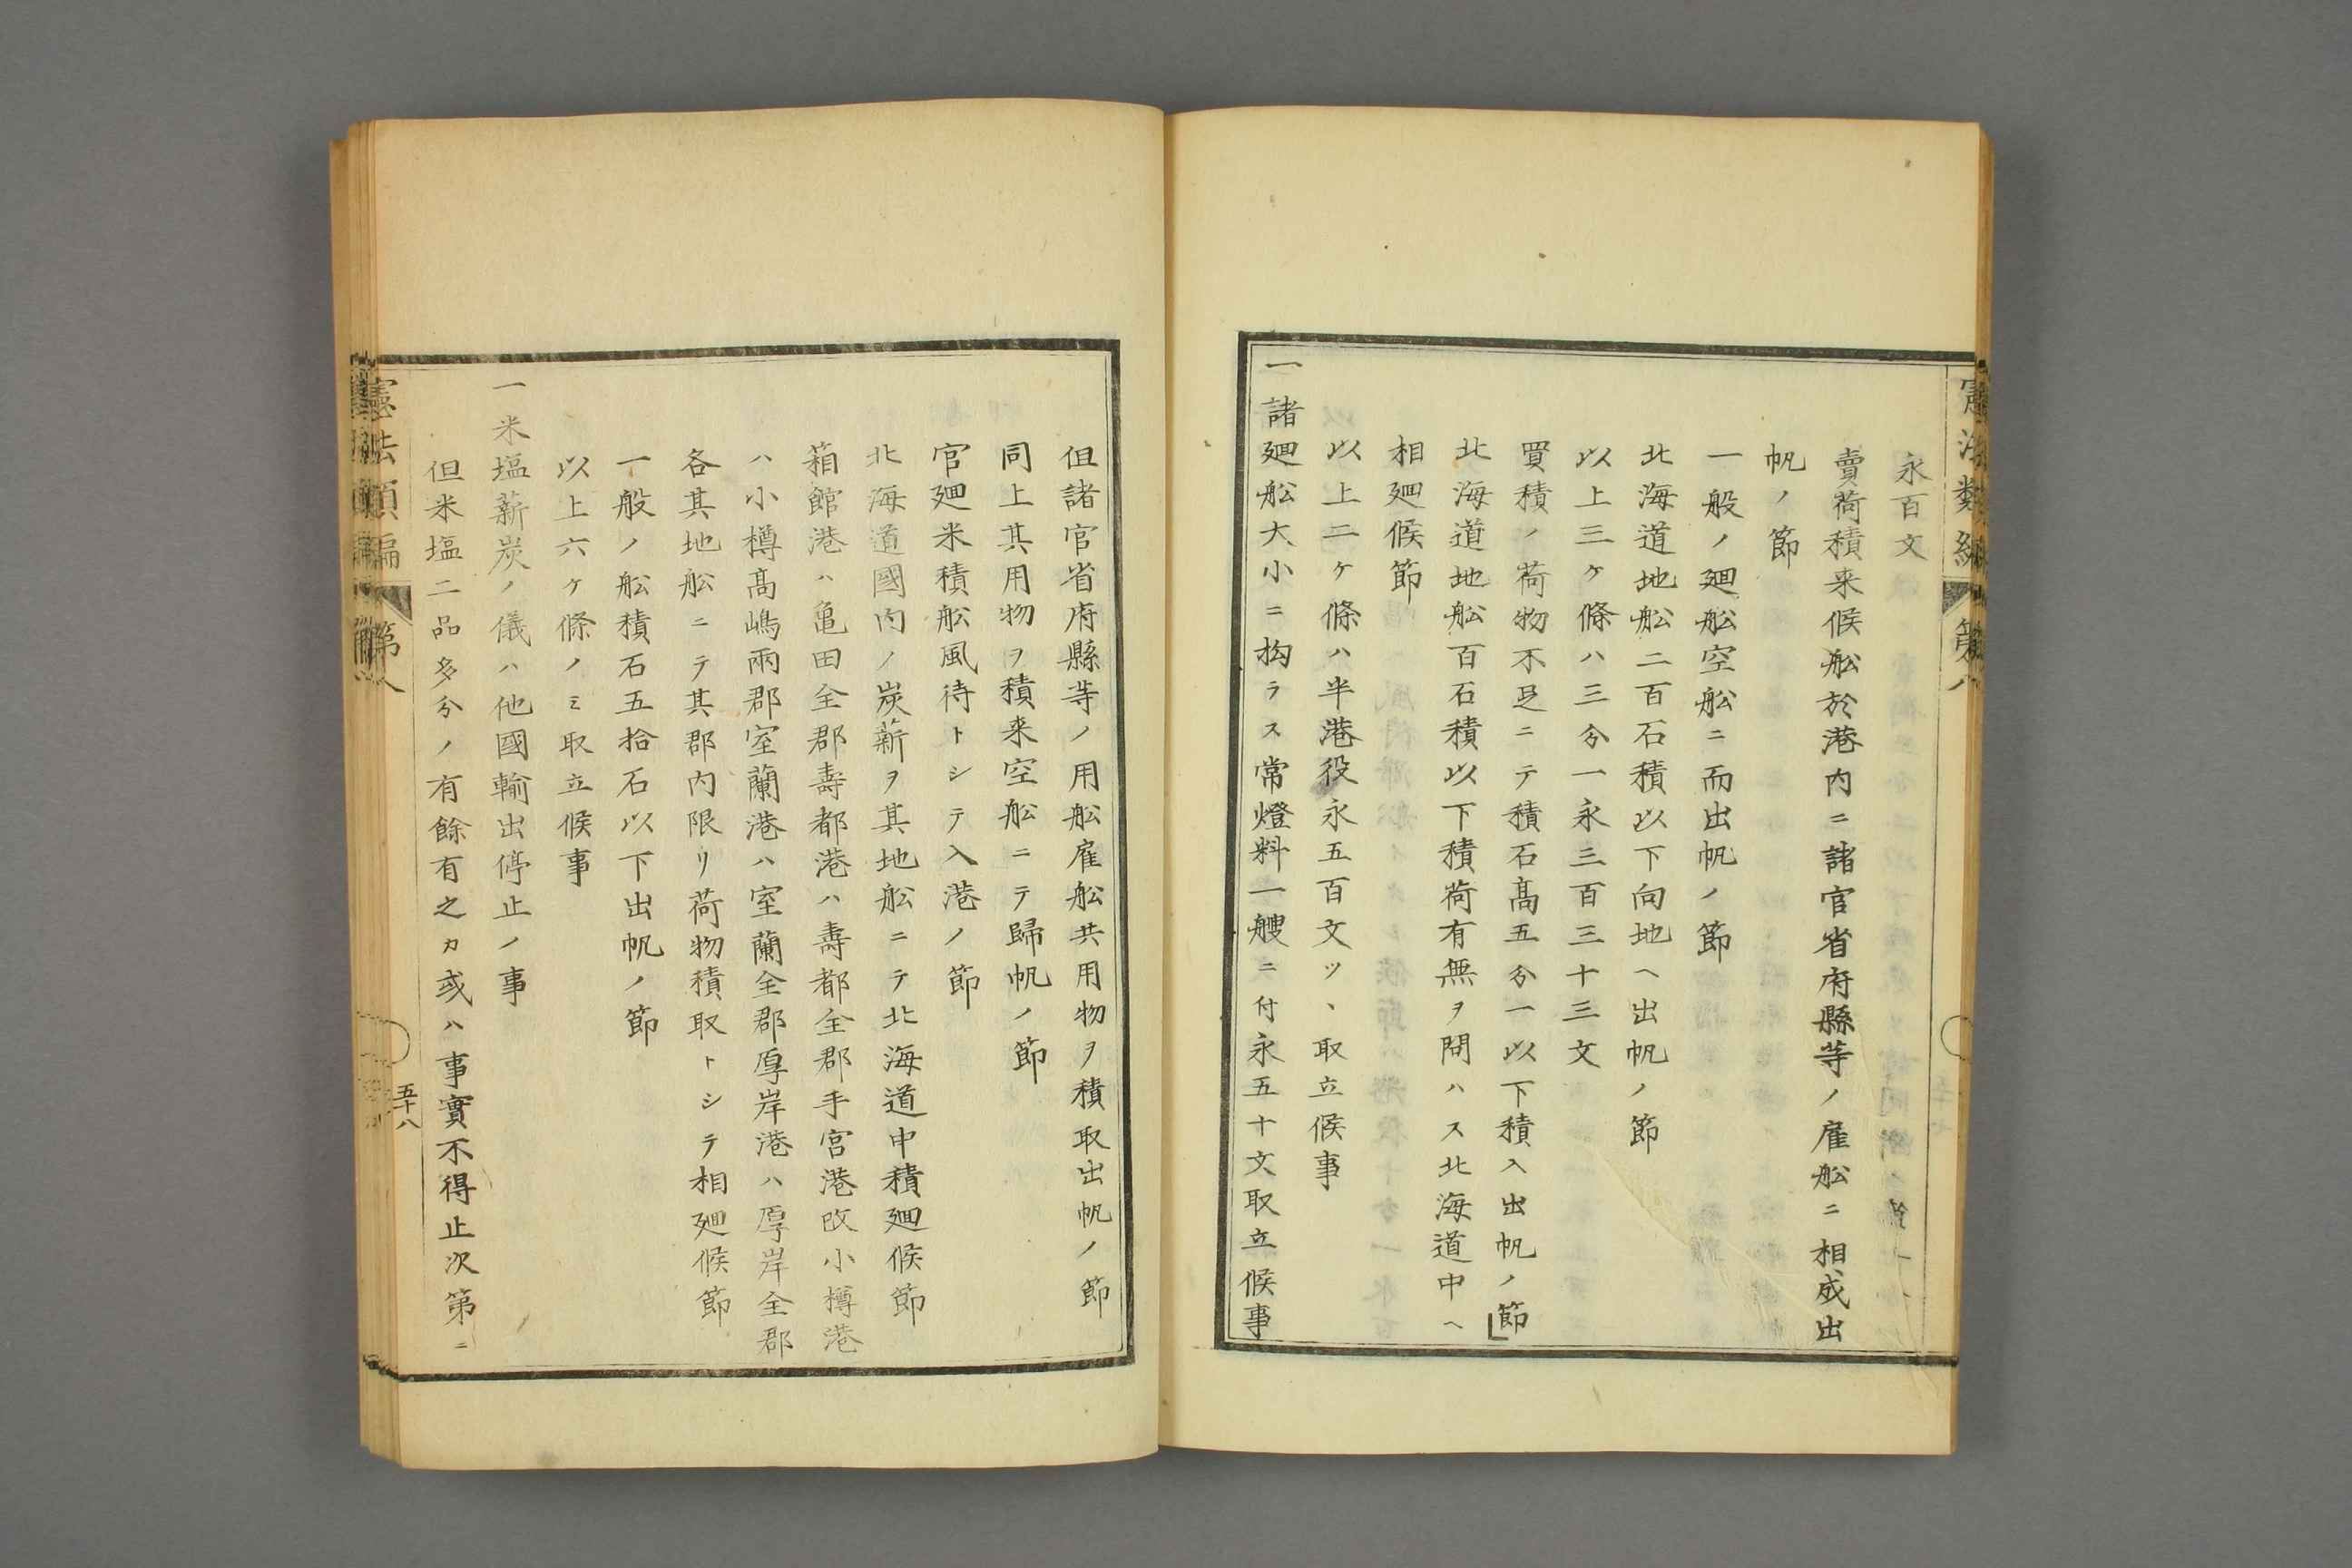 永百文
賣荷積来候舩於港内ニ諸官省府縣等ノ雇舩ニ相成出
帆ノ節
一般ノ廻舩空舩ニ而出帆ノ節
北海道地舩二百石積以下向地ヘ出帆ノ節
以上三ケ條ハ三分一永三百三十三文
買積ノ荷物不足ニテ積石髙五分一以下積入出帆ノ節
北海道地舩百石積以下積荷有無ヲ問ハス北海道中ヘ
相廻候節
以上二ケ條ハ半港役永五百文ツヽ取立候事
一諸廻舩大小ニ拘ラス常燈料一艘ニ付永五十文取立候事
但諸官省府縣等ノ用舩雇舩共用物ヲ積取出帆ノ節
同上其用物ヲ積来空舩ニテ歸帆ノ節
官廻米積舩風待トシテ入港ノ節
北海道國内ノ炭薪ヲ其地舩ニテ北海道中積廻候節
箱館港ハ亀田全郡壽都港ハ壽都全郡手宮港改小樽港
ハ小樽髙嶋兩郡室蘭港ハ室蘭全郡厚岸港ハ厚岸全郡
各其地舩ニテ其郡内限リ荷物積取トシテ相廻候節
一般ノ舩積石五拾石以下出帆ノ節
以上六ケ條ノミ取立候事
一米塩薪炭ノ儀ハ他國輸出停止ノ事
但米塩二品多分ノ有餘有之カ或ハ事實不得止次第ニ
憲法類編 第八
五十八